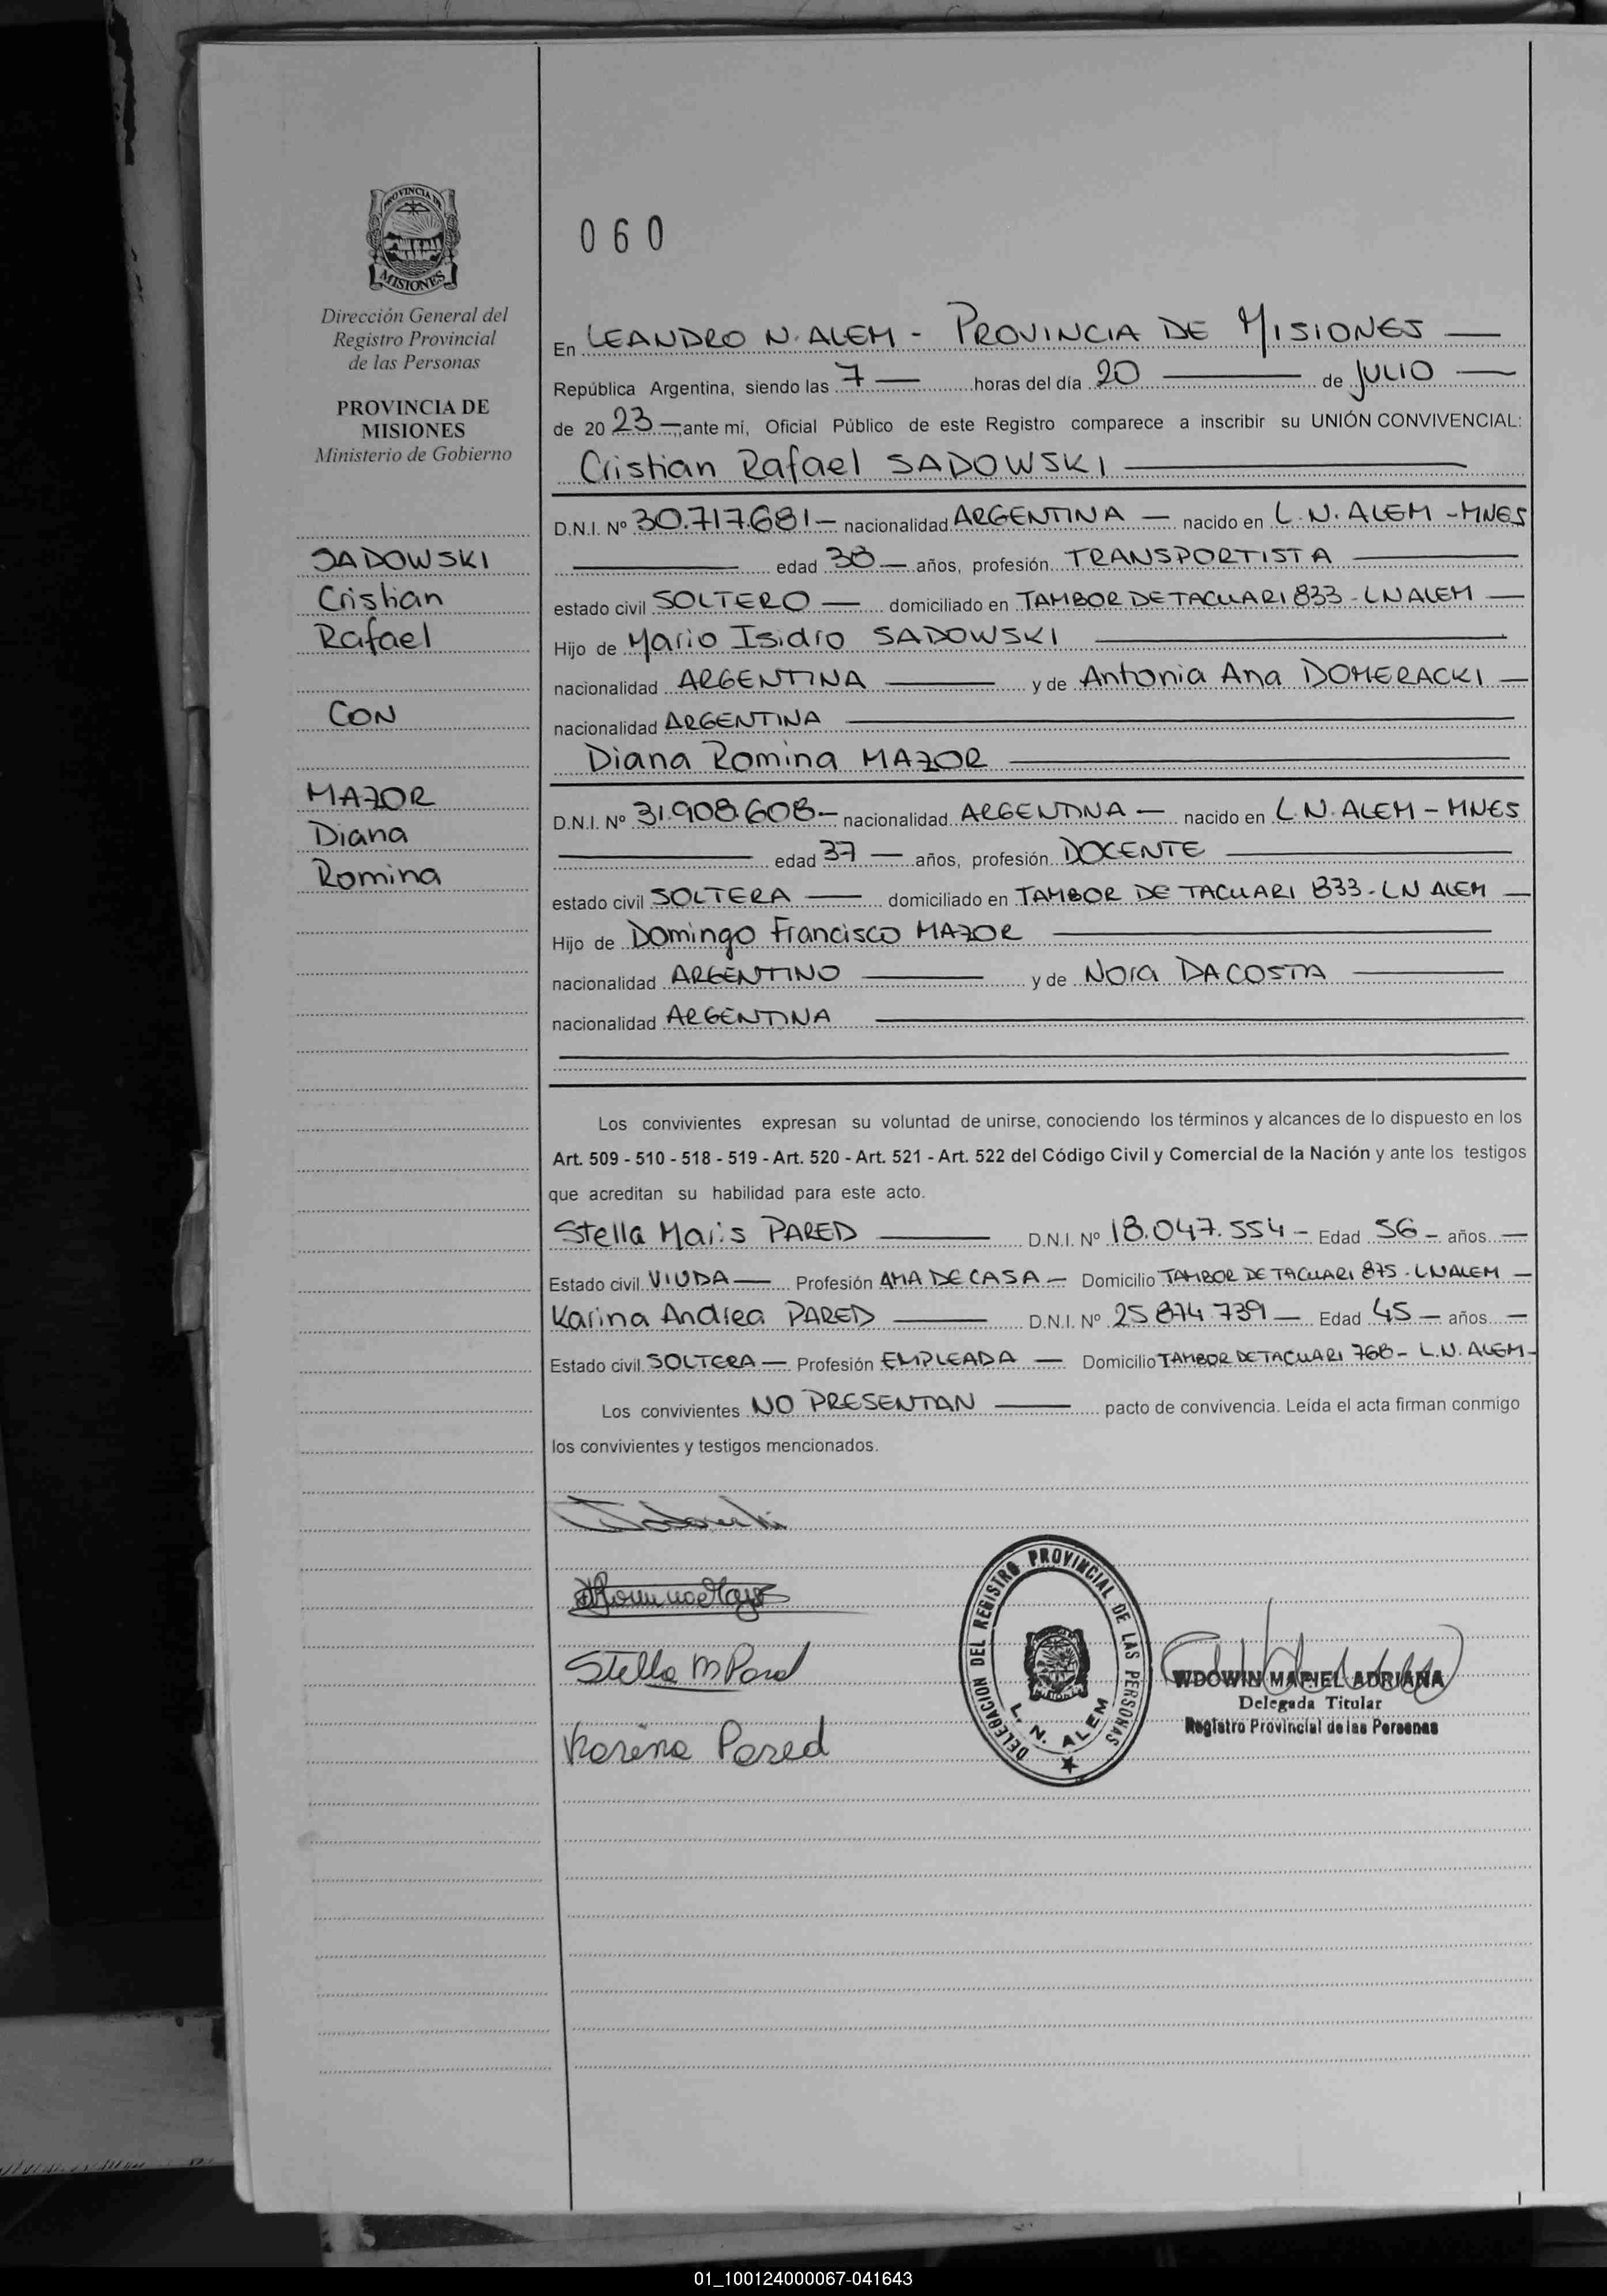 PROVINCIA DE
MISIONES
Dirección General del
Registro Provincial
de las Personas
PROVINCIA DE
MISIONES
Ministerio de Gobierno
SADOWSKI
Cristian
Rafael
CON
MAZOR
Diana
Romina
060
En LEANDRO N. ALEM - PROVINCIA DE MISIONES —
República Argentina, siendo las 7 — horas del día 20 — de JULIO —
de 20 23 — ante mi, Oficial Público de este Registro comparece a inscribir su UNIÓN CONVIVENCIAL:
Cristian Rafael SADOWSKI —
D.N.I. Nº 30.717.681 — nacionalidad ARGENTINA — nacido en L.N. ALEM - MNES
— edad 38 — años, profesión TRANSPORTISTA —
estado civil SOLTERO — domiciliado en TAMBOR DE TACUARI 833 - LN ALEM —
Hijo de Mario Isidro SADOWSKI —
nacionalidad ARGENTINA — y de Antonia Ana DOMERACKI —
nacionalidad ARGENTINA —
Diana Romina MAZOR —
D.N.I. Nº 31.908.608 — nacionalidad ARGENTINA — nacido en L.N. ALEM - MNES
— edad 37 — años, profesión DOCENTE —
estado civil SOLTERA — domiciliado en TAMBOR DE TACUARI 833 - LN ALEM —
Hijo de Domingo Francisco MAZOR —
nacionalidad ARGENTINO — y de Nora DACOSTA —
nacionalidad ARGENTINA —
Los convivientes expresan su voluntad de unirse, conociendo los términos y alcances de lo dispuesto en los
Art. 509 - 510 - 518 - 519 - Art. 520 - Art. 521 - Art. 522 del Código Civil y Comercial de la Nación y ante los testigos
que acreditan su habilidad para este acto.
Stella Maris PARED — D.N.I. Nº 18.047.554 — Edad 56 — años. —
Estado civil VIUDA — Profesión AMA DE CASA — Domicilio TAMBOR DE TACUARI 875 - LN ALEM —
Karina Andrea PARED — D.N.I. Nº 25.874.739 — Edad 45 — años. —
Estado civil SOLTERA — Profesión EMPLEADA — Domicilio TAMBOR DE TACUARI 768 - L.N. ALEM -
Los convivientes NO PRESENTAN — pacto de convivencia. Leída el acta firman conmigo
los convivientes y testigos mencionados.
Stella M Pared
Karina Pared
DELEGACION DEL REGISTRO PROVINCIAL DE LAS PERSONAS
L. N. ALEM
WDOWIN MARIEL ADRIANA
Delegada Titular
Registro Provincial de las Personas
01_100124000067-041643